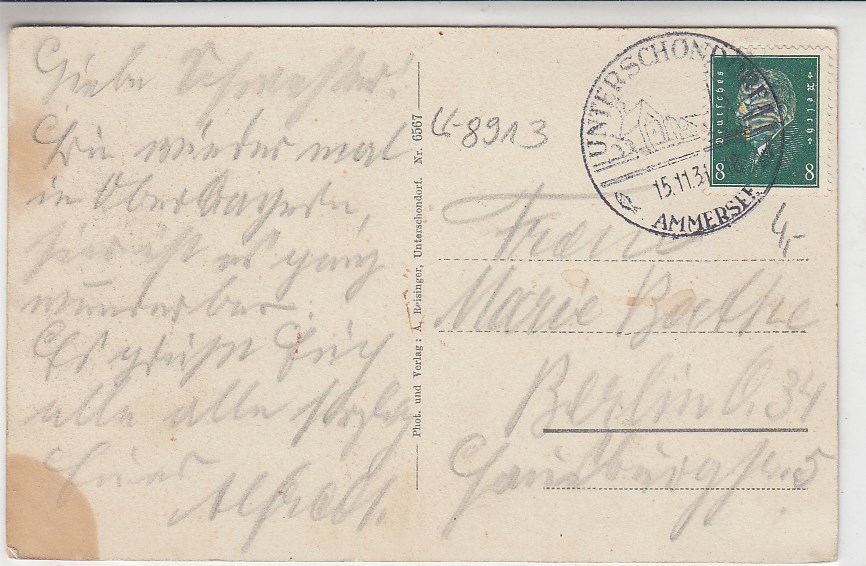 Liebe Schwester!
Bin wieder mal
in Oberbayern,
hier ist es ganz
wunderbar.
Es grüßt Euch
alle alle herzlich
Euer
Alfred.
Phot. und Verlag: A. Reisinger, Unterschondorf. Nr. 6567
LL-8913
UNTERSCHONDORF
15.11.31
AMMERSEE
Deutsches Reich
8 8
4,-
Frau
Marie Boethe
Berlin O. 34
5